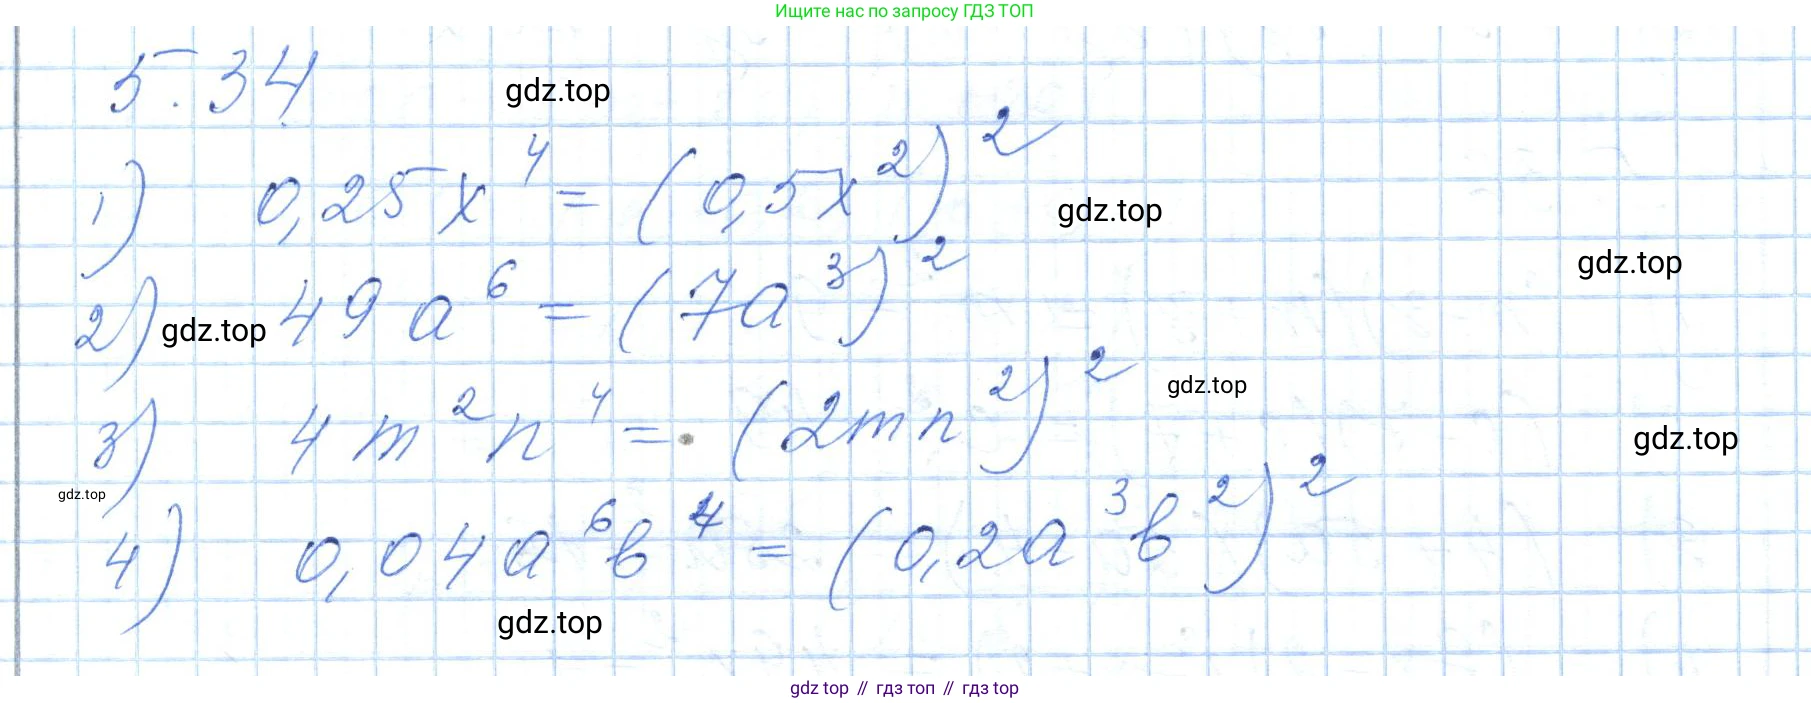 Ищите нас по запросу ГДЗ ТОП
5.34
gdz.top
1) 0,25x⁴ = (0,5x²)²
gdz.top
gdz.top
2) 49a⁶ = (7a³)²
gdz.top
3) 4m²n⁴ = (2mn²)²
gdz.top
gdz.top
gdz.top
4) 0,04a⁶b⁴ = (0,2a³b²)²
gdz.top
gdz top // гдз топ // гдз top